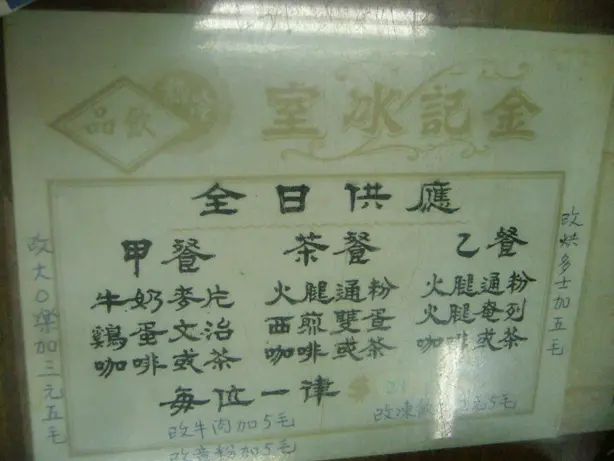 金記冰室
飲品
全日供應
甲餐
牛奶麥片
鷄蛋文治
咖啡或茶
茶餐
火腿通粉
西煎雙蛋
咖啡或茶
乙餐
火腿通粉
火腿奄列
咖啡或茶
每位一律 $
改牛肉加5毛
改意粉加5毛
改凍飲元5毛
改烘多士加五毛
改大〇樂加三元五毛